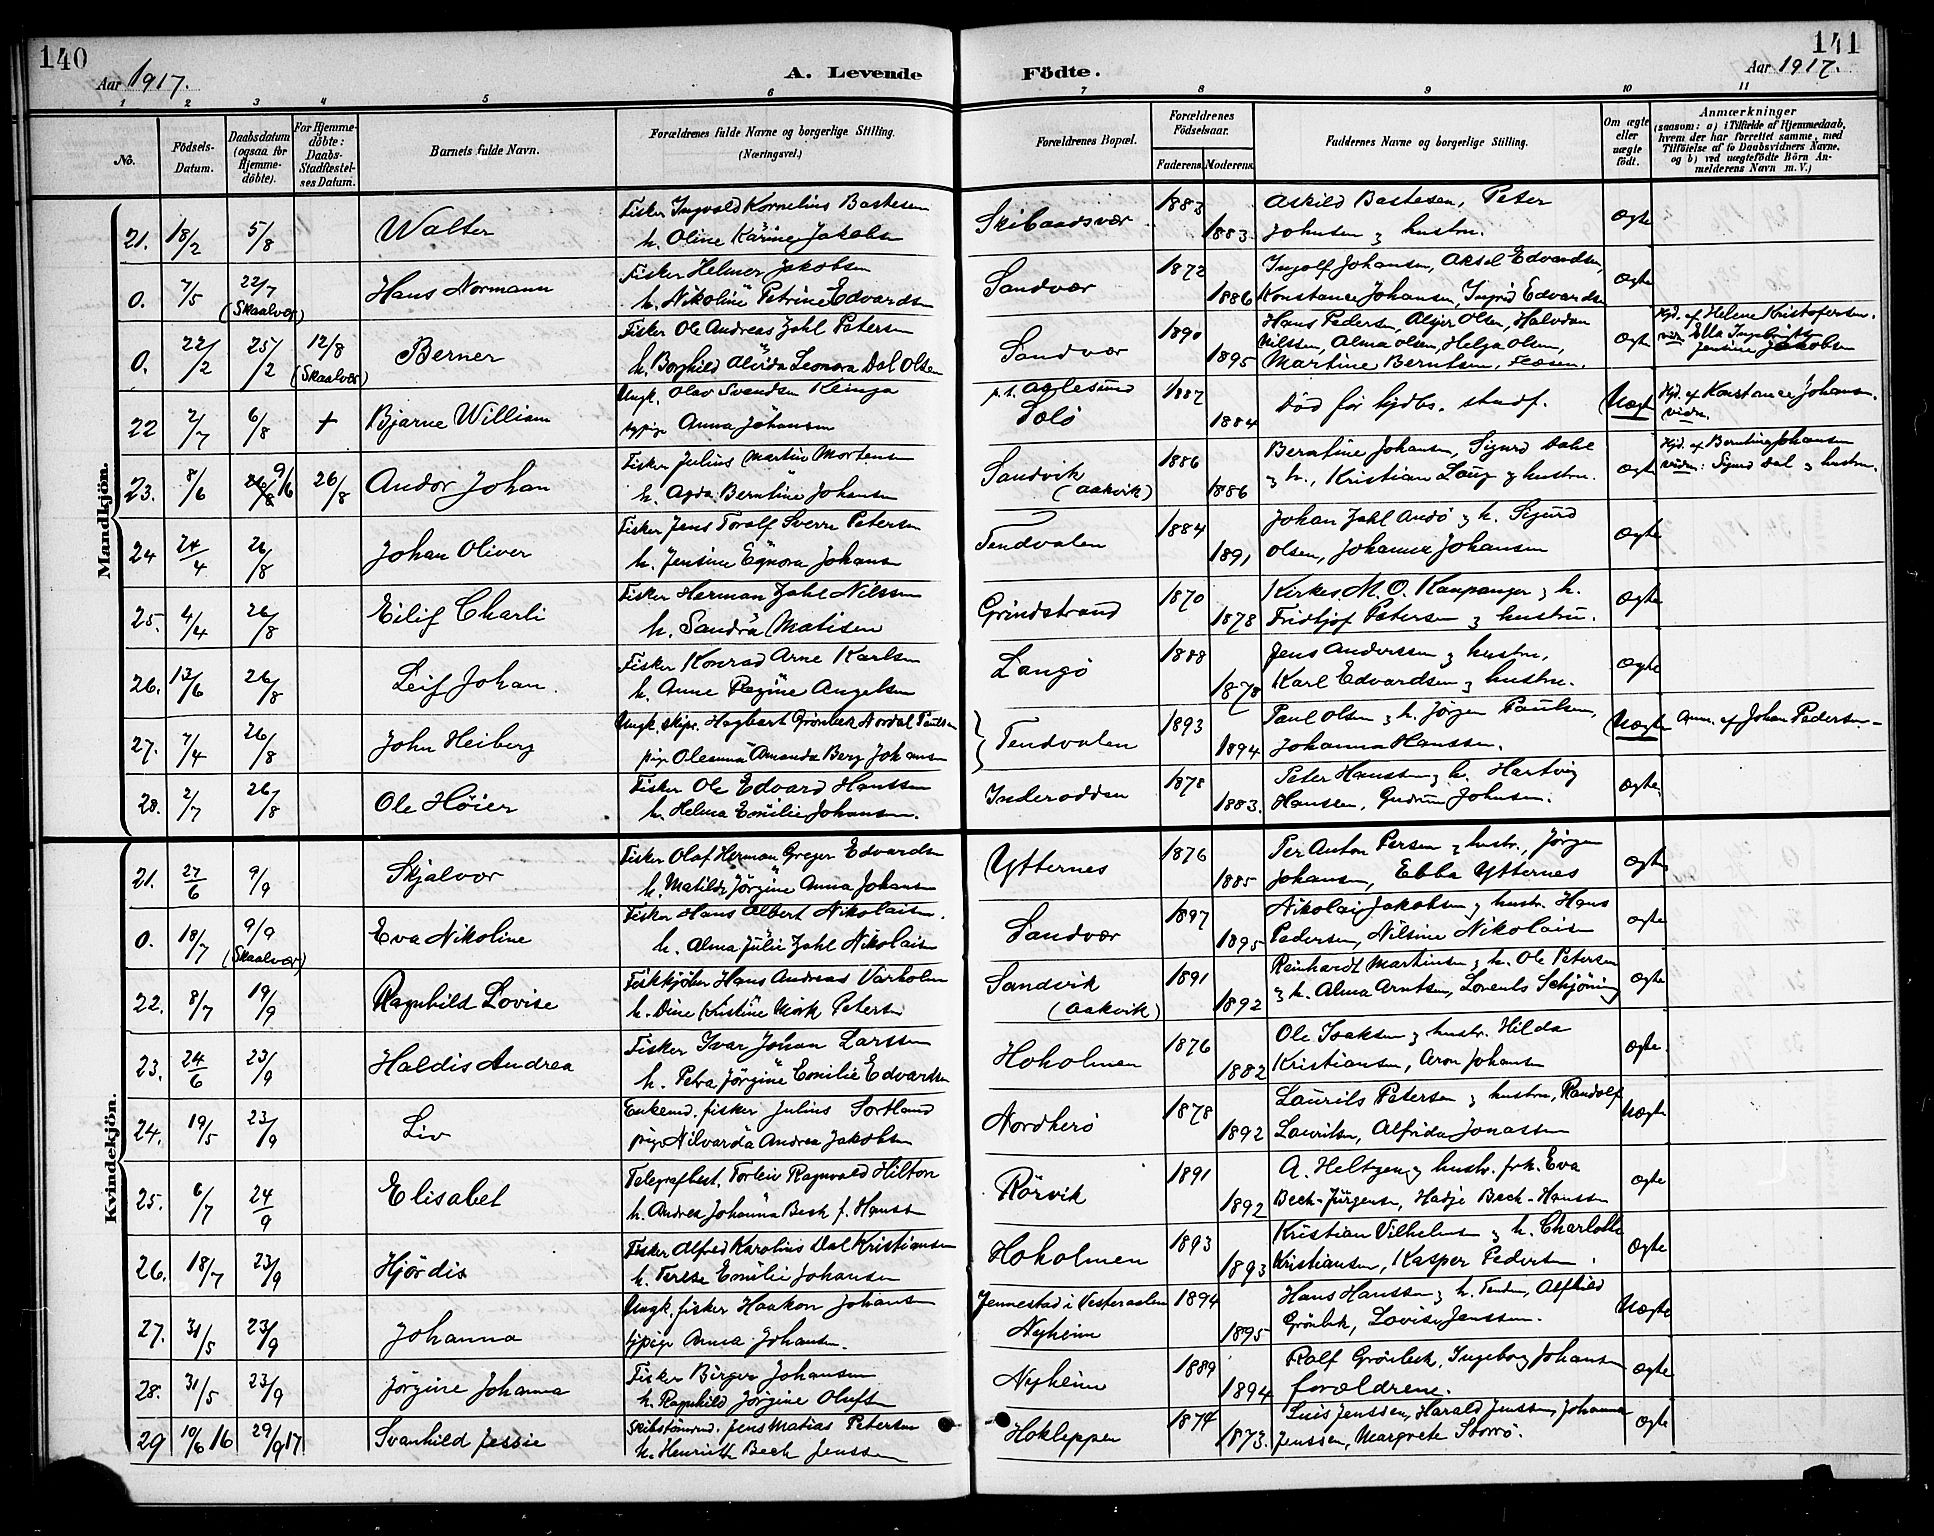 140
Aar 1917.
A. Levende
Födte.
141
Aar 1917.
1 2 3 4 5 6 7 8 9 10 11
No.
Födsels-Datum.
Daabsdatum (ogsaa for Hjemmedöbte).
For Hjemmedöbte: Daabs-Stadfæstelses Datum.
Barnets fulde Navn.
Forældrenes fulde Navne og borgerlige Stilling.
(Næringsvei.)
Forældrenes Bopæl.
Forældrenes Födselsaar.
Faderens. Moderens.
Faddernes Navne og borgerlige Stilling.
Om ægte eller uægte födt.
Anmærkninger
(saasom: a) i Tilfælde af Hjemmedaab, hvem der har forrettet samme, med Tilföielse af to Daabsvidners Navne, og b) ved uægtefödte Börn Anmelderens Navn m. V.)
Mandkjön.
21. 18/2 5/8 Walter Fisker Ingvald Kornelius Bastesen 1883 Askild Bastesen, Peter
h. Oline Karine Jakobsen Skibaadsvær 1883. Johnsen og hustru. Ægte
0. 7/5 22/7 (Skaalvær) Hans Normann Fisker Helmer Jakobsen Sandvær 1872 Ingolf Johansen, Aksel Edvardsen, Ægte
h. Nikoline Petrine Edvardsen 1886 Konstance Johansen, Ingrid Edvardsen
0. 22/2 25/2 12/8 (Skaalvær) Berner Fisker Ole Andreas Zahl Petersen Sandvær 1890 Hans Pedersen, Asbjør Olsen, Halvdan Ægte Hjd. af Helene Kristofersen.
h. Borghild Alvida Leonora Dal Olsen 1895 Nilssen, Alma Olsen, Helga Olsen, vidn. Ella Ingebrigts
Martine Berntsen, Jensine Jakobsen
22 2/7 6/8 + Bjarne William Ungk. Olav Svendsen Kleinga 1887 Död før hjdbs. stadf. Uægt Hjd. af Konstance Johansen.
Anna Johansen Solö 1884 vidn.
23. 8/6 9/6 26/8 Andor Johan Fisker Julius Martin Mortensen Sandvik 1886 Berntine Johansen, Sigurd Dahl Ægte Hjd. af Berntine Johansen
h. Agda Berntine Johansen (Aakvik) 1886 og h., Kristian Laug og hustru. vidn: Sigurd Dal og hustru.
24 24/4 26/8 Johan Oliver Fisker Jens Toralf Sverre Petersen Tendvalen 1884 Johan Zahl Andö og h. Sigurd Ægte
h. Jensine Egnora Johansen 1891 Olsen, Johanne Johansen
25. 4/4 26/8 Eilif Charli Fisker Herman Zahl Nilssen Grindstrand 1870 Kirkes. M. O. Kaupanger og h. Ægte
h. Sandra Matisen 1878 Fridtjof Petersen og hustru.
26. 12/6 26/8 Leif Johan. Fisker Konrad Arne Karlsen Langö 1888 Jens Anderssen og hustru, Ægte
h. Anne Regine Angelsen 1878 Karl Edvardsen og hustru.
27. 7/4 26/8 John Heiberg Ungk. skipr. Hagbart Grönbek Nordal Paulsen Tendvalen 1893 Paul Olsen og h. Jörgen Paulsen, Uægte Anm. af Johan Pedersen
pige Olesanna Amanda Berg Johansen 1894 Johanna Hanssen.
28. 2/7 26/8 Ole Höier Fisker Ole Edvard Hanssen Inderodden 1878 Peter Hanssen og h. Hartvig Ægte.
h. Helma Emilie Johansen. 1883. Hanssen, Gudrun Johnsen.
Kvindekjön.
21. 27/6 9/9 Skjalvor Fisker Olaf Herman Greger Edvardsen Ytternes 1876 Per Anton Persen og hustr., Jörgen Ægte
h. Matilde Jörgine Anna Johansen 1885 Johansen, Ebba Ytternes
0. 18/7 9/9 (Skaalvær) Eva Nikoline Fisker Hans Albert Nikolaisen. Sandvær 1897 Nikolai Jakobsen og hustr. Hans Ægte
h. Alma Julie Zahl Nikolaisen 1895 Pedersen, Nilsine Nikolaisen
22. 8/7 19/9 Ragnhild Lovise Fiskkjöber Hans Andreas Varholm Sandvik 1891 Reinhardt Martinsen og h. Ole Petersen Ægte
h. Dine Kristine Mörk Petersen (Aakvik) 1892 og h. Alma Arntsen, Lorents Schjöning
23. 24/6 23/9 Haldis Andrea Fisker Ivar Johan Larssen Hoholmen 1876 Ole Isaksen og hustr. Hilda Ægte.
h. Petra Jörgine Emilie Edvardsen 1882 Kristiansen, Aron Johansen
24. 19/5 23/9 Liv Enkemd. fisker Julius Sortland Nordherö 1878 Laurits Petersen og hustru, Randolf Uægte
pige Nilvarda Andrea Jakobsen 1892 Lauritsen, Alfrida Jonassen
25. 6/7 24/9 Elisabet Telegrafbest. Torleiv Ragnvald Hilton Rörvik 1891 A. Heltzen og hustr. frk. Eva Ægte
h. Andrea Johanna Beck f. Hanssen 1892 Bech-Jürgensen, Hadje Bech-Hanssen
26. 18/7 23/9 Hjördis Fisker Alfred Karolius Dal Kristiansen Hoholmen 1893 Kristian Vilhelmsen og h. Charlotte Ægte
h. Terese Emilie Johansen 1893 Kristiansen, Kasper Pedersen.
27. 31/5 23/9 Johanna Ungk. fisker Haakon Johansen Jennestad i Vesteraalen 1894 Hans Hanssen og h. Alfhild Uægte
Anna Johansen. Nyheim 1895 Grönbek, Lovise Jenssen.
28. 31/5 23/9 Jörgine Johanna Fisker Birger Johansen Nyheim 1889 Ralf Grönbek, Ingeborg Johansen Ægte
h. Ragnhild Jörgine Olufsen 1894 forældrene.
29 10/6 16 29/9 17 Svanhild Jessie Skibstömmd. Jens Matias Petersen Hokleppen 1874 Luis Jenssen, Harald Jenssen, Johanna Ægte
h. Henriette Bech Jenssen 1873. Jenssen, Margrete Storrö.